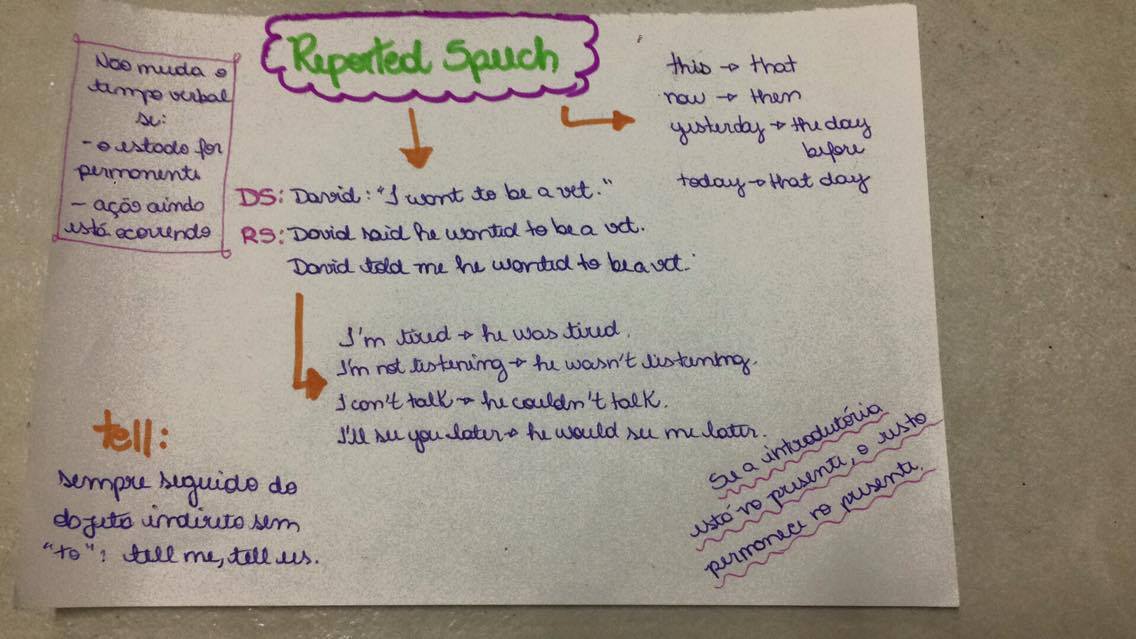 Reported Speech
Não muda o
tempo verbal
se:
- o estado for
permanente
- ação ainda
está ocorrendo
this → that
now → then
yesterday → the day
before
today → that day
DS: David: "I want to be a vet."
RS: David said he wanted to be a vet.
David told me he wanted to be a vet.
I'm tired → he was tired.
I'm not listening → he wasn't listening.
I can't talk → he couldn't talk.
I'll see you later → he would see me later.
tell:
sempre seguido do
objeto indireto sem
"to": tell me, tell us.
Se a introdutória
está no presente, o resto
permanece no presente.